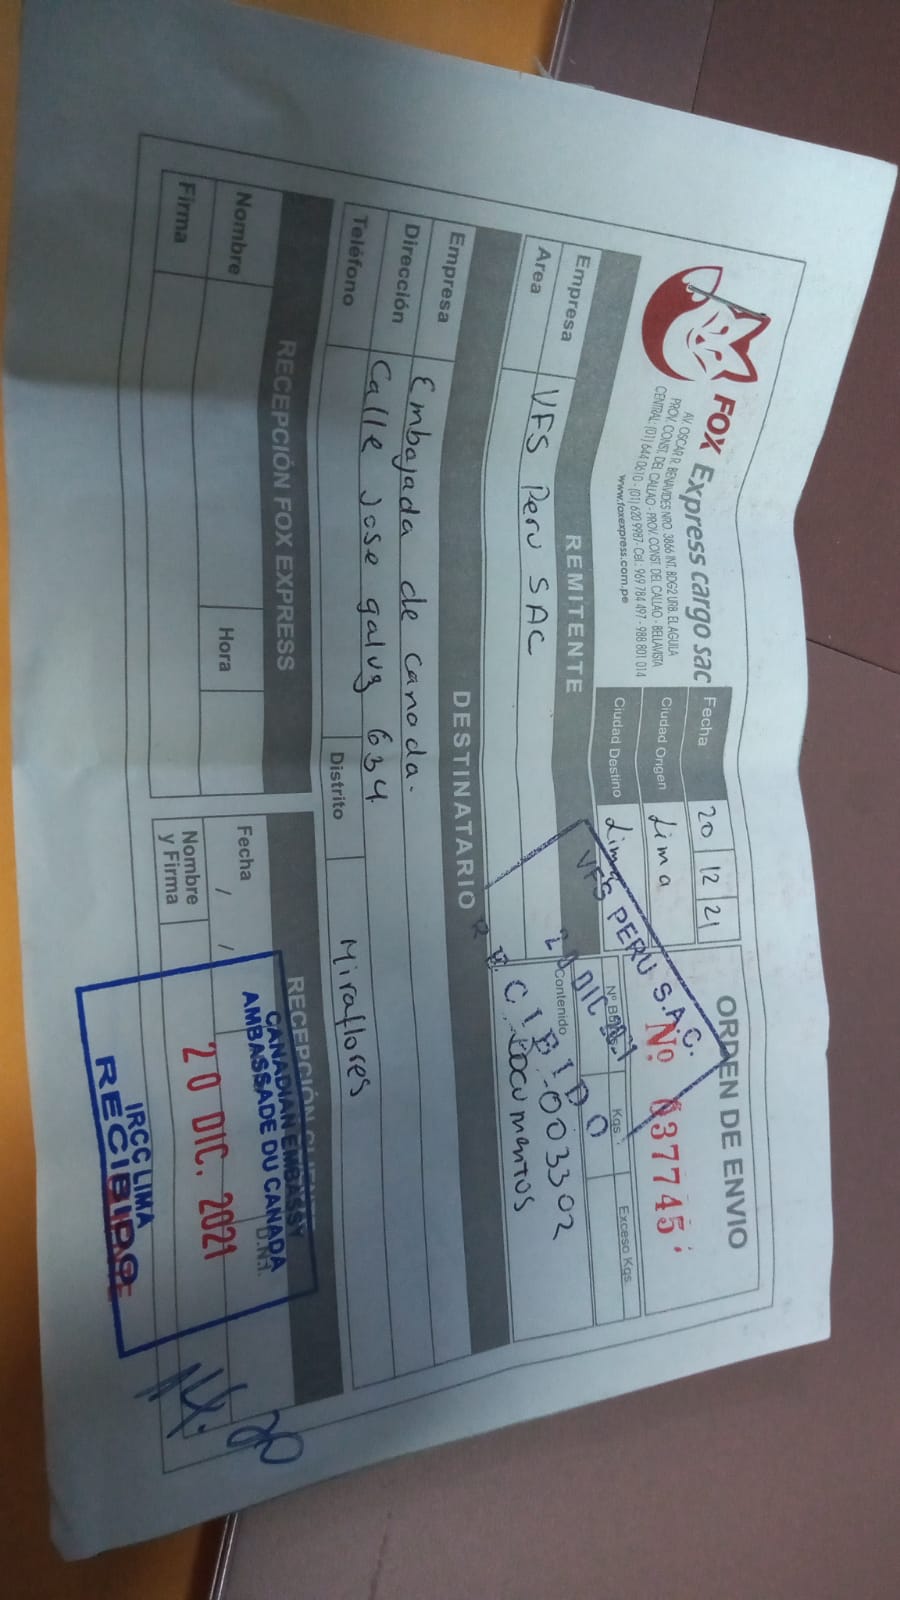 FOX Express cargo sac
AV. OSCAR R. BENAVIDES NRO. 3866 INT. BDG2 URB. EL AGUILA
PROV. CONST. DEL CALLAO - PROV. CONST. DEL CALLAO - BELLAVISTA
CENTRAL: (01) 644 0610 - (01) 620 9987 - Cel.: 969 784 497 - 988 801 014
www.foxexpress.com.pe
Fecha 20 12 21
Ciudad Origen Lima
Ciudad Destino Lima
ORDEN DE ENVIO
Nº 037745
REMITENTE
Empresa VFS Peru SAC
Area
Kgs Exceso Kgs
Contenido
003302
Documentos
VFS PERU S.A.C.
RECIBIDO
DESTINATARIO
Empresa Embajada de Canada.
Dirección Calle Jose galvez 634
Teléfono Distrito Miraflores
RECEPCIÓN FOX EXPRESS
Nombre Hora
Firma
RECEPCIÓN
Fecha / / D.N.I.
Nombre
y Firma
CANADIAN EMBASSY
AMBASSADE DU CANADA
20 DIC. 2021
IRCC LIMA
RECIBIDO